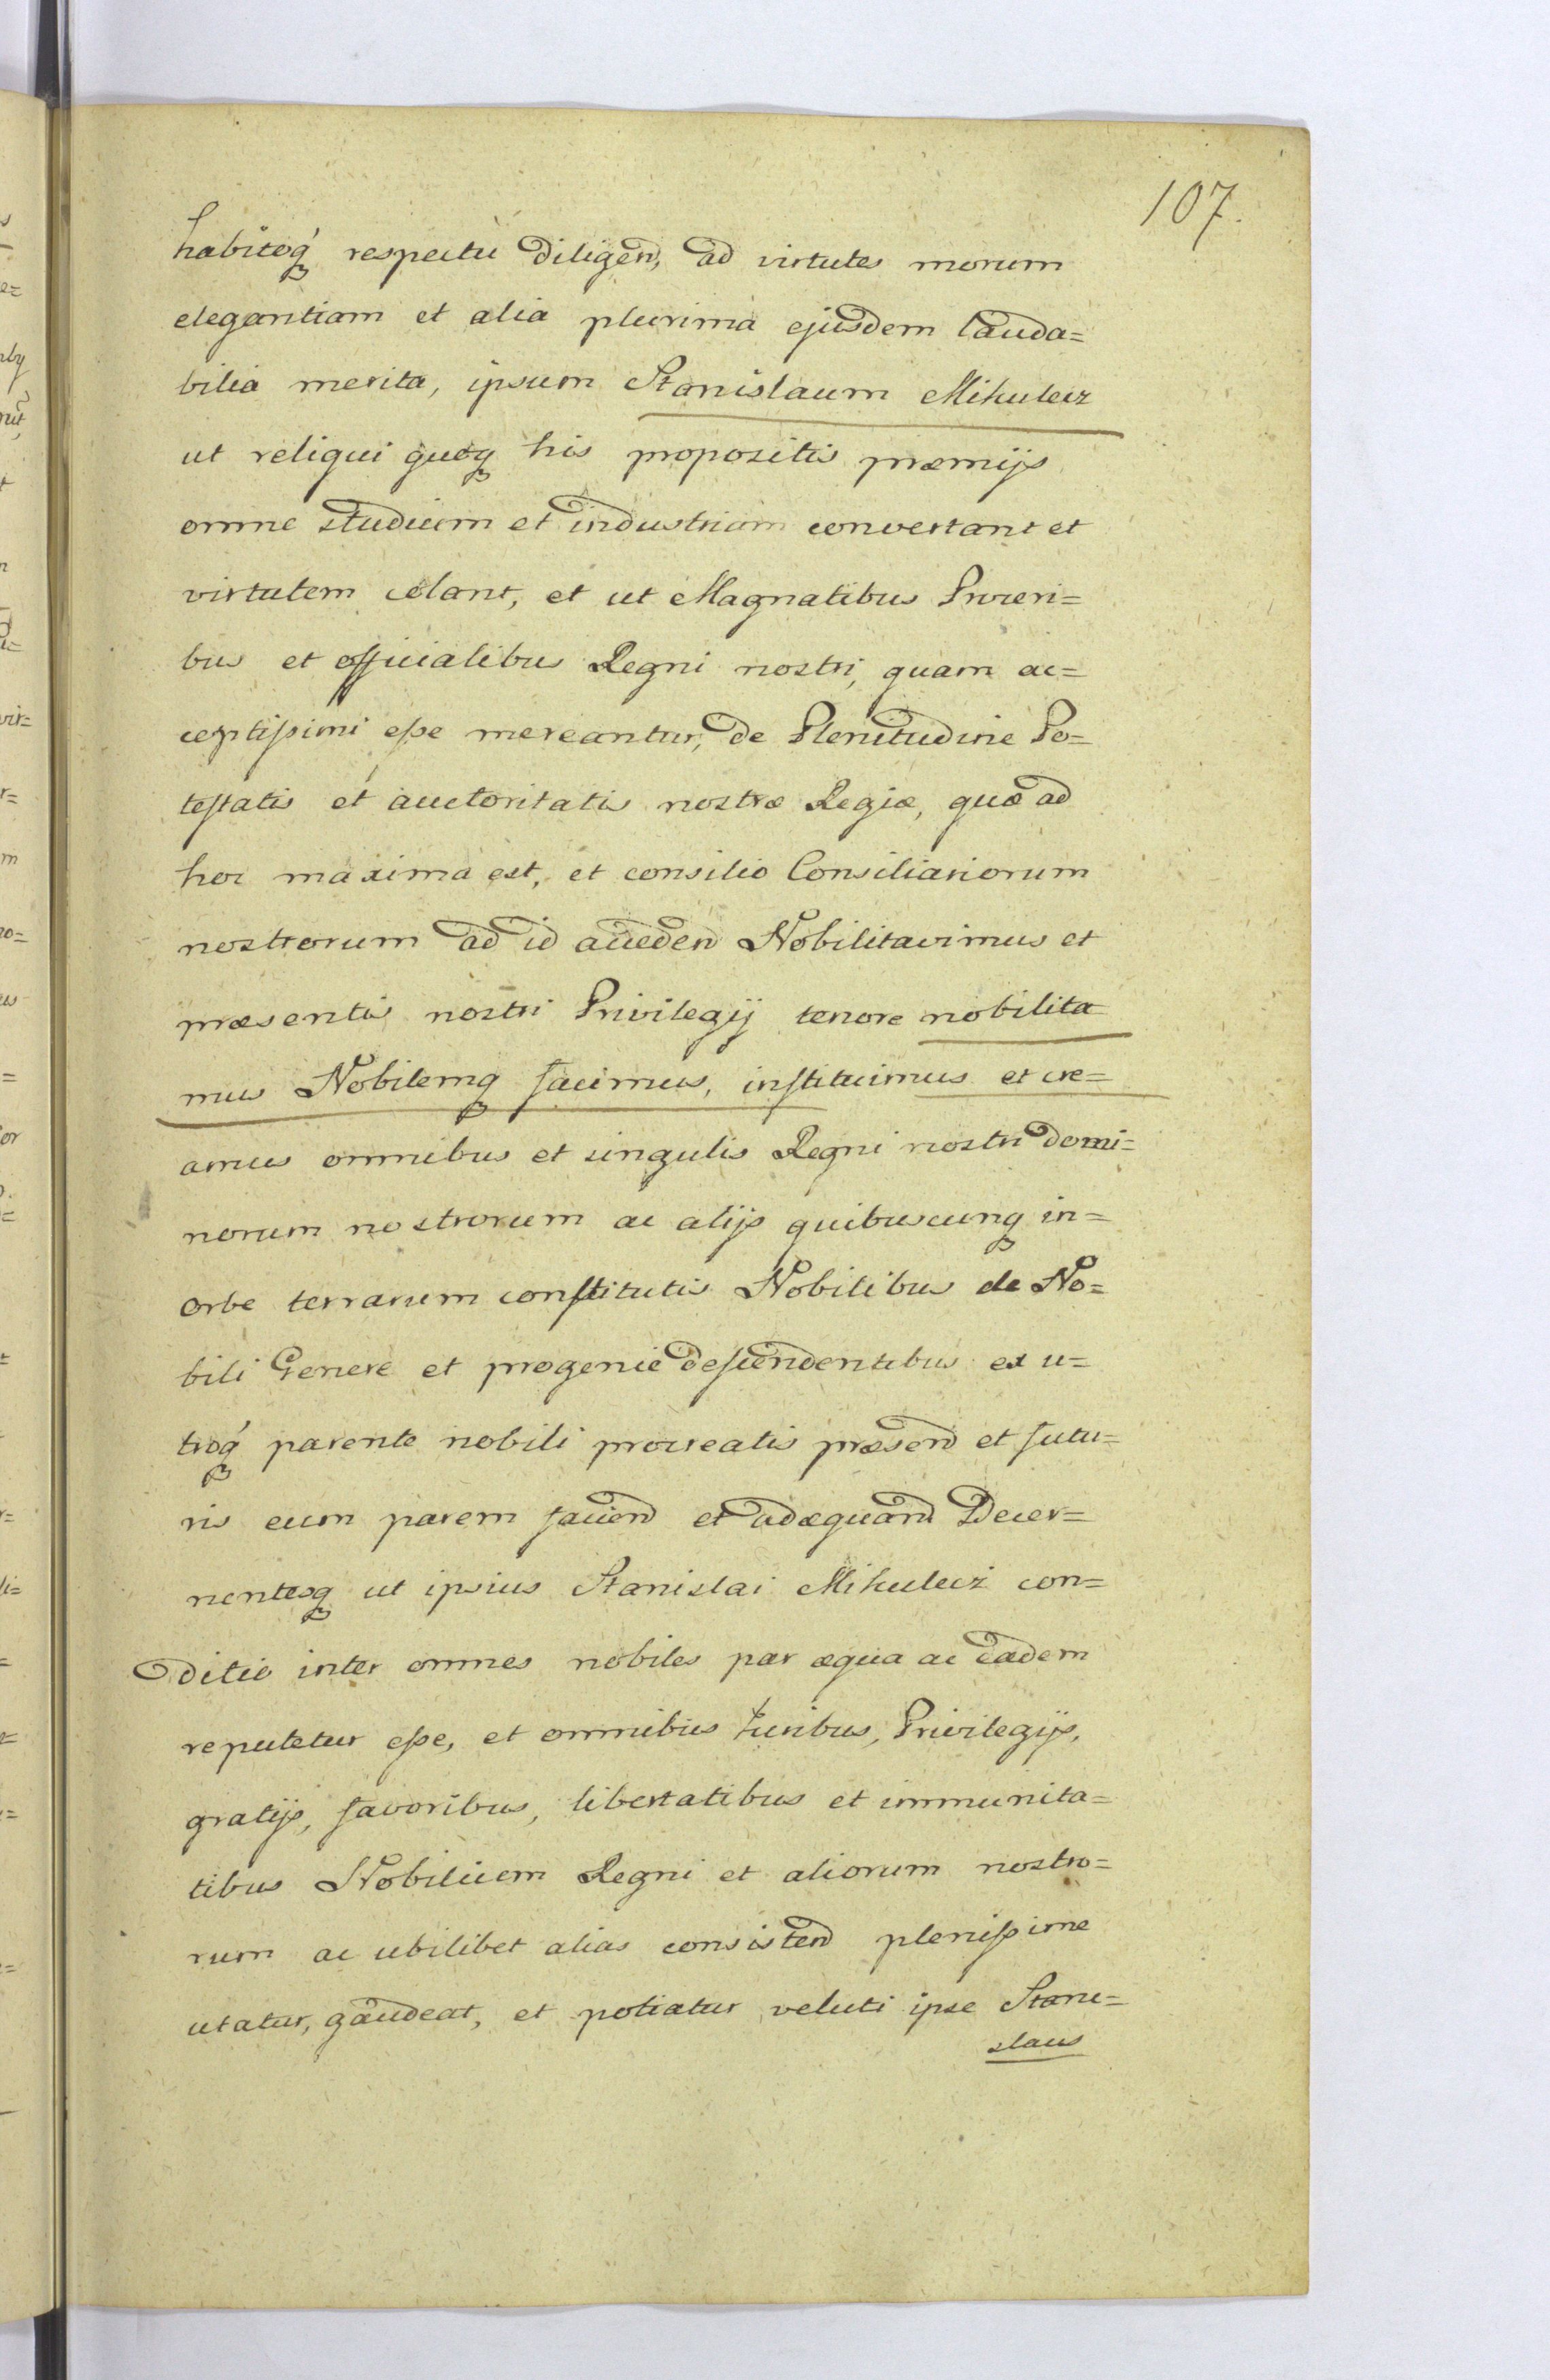 107.
habitoq́ respectu diligen, ad virtutes morum
elegantiam et alia plurima ejusdem lauda=
bilia merita, ipsum Stanislaum Mikulecz
ut reliqui quoq his propositis præmijs
omne studium et industriam convertant et
virtutem colant, et ut Magnatibus Proceri=
bus et officialibus Regni nostri, quam ac=
ceptißimi eße mereantur, de Plenitudine Po=
testatis et auctoritatis nostræ Regiæ, quæ ad
hoc maxima est, et consilio Consiliariorum
nostrorum ad id acceden Nobilitavimus et
præsentis nostri Privilegij tenore nobilita
mus Nobilemq facimus, instituimus et cre=
amus omnibus et singulis Regni nostri domi=
norum nostrorum ac alijs quibuscunq in=
orbe terrarum constitutis Nobilibus de No=
bili Genere et progenie descendentibus ex u=
troq́ parente nobili procreatis præsen et futu=
ris eum parem facien et adæquand Decer=
nentesq ut ipsius Stanislai Mikulecz con=
ditio inter omnes nobiles par æqua ac eadem
reputetur eße, et omnibus Iuribus, Privilegijs,
gratijs, favoribus, libertatibus et immunita=
tibus Nobilium Regni et aliorum nostro=
rum ac ubilibet alias consisten plenißime
utatur, gaudeat, et potiatur veluti ipse Stani=
slaus